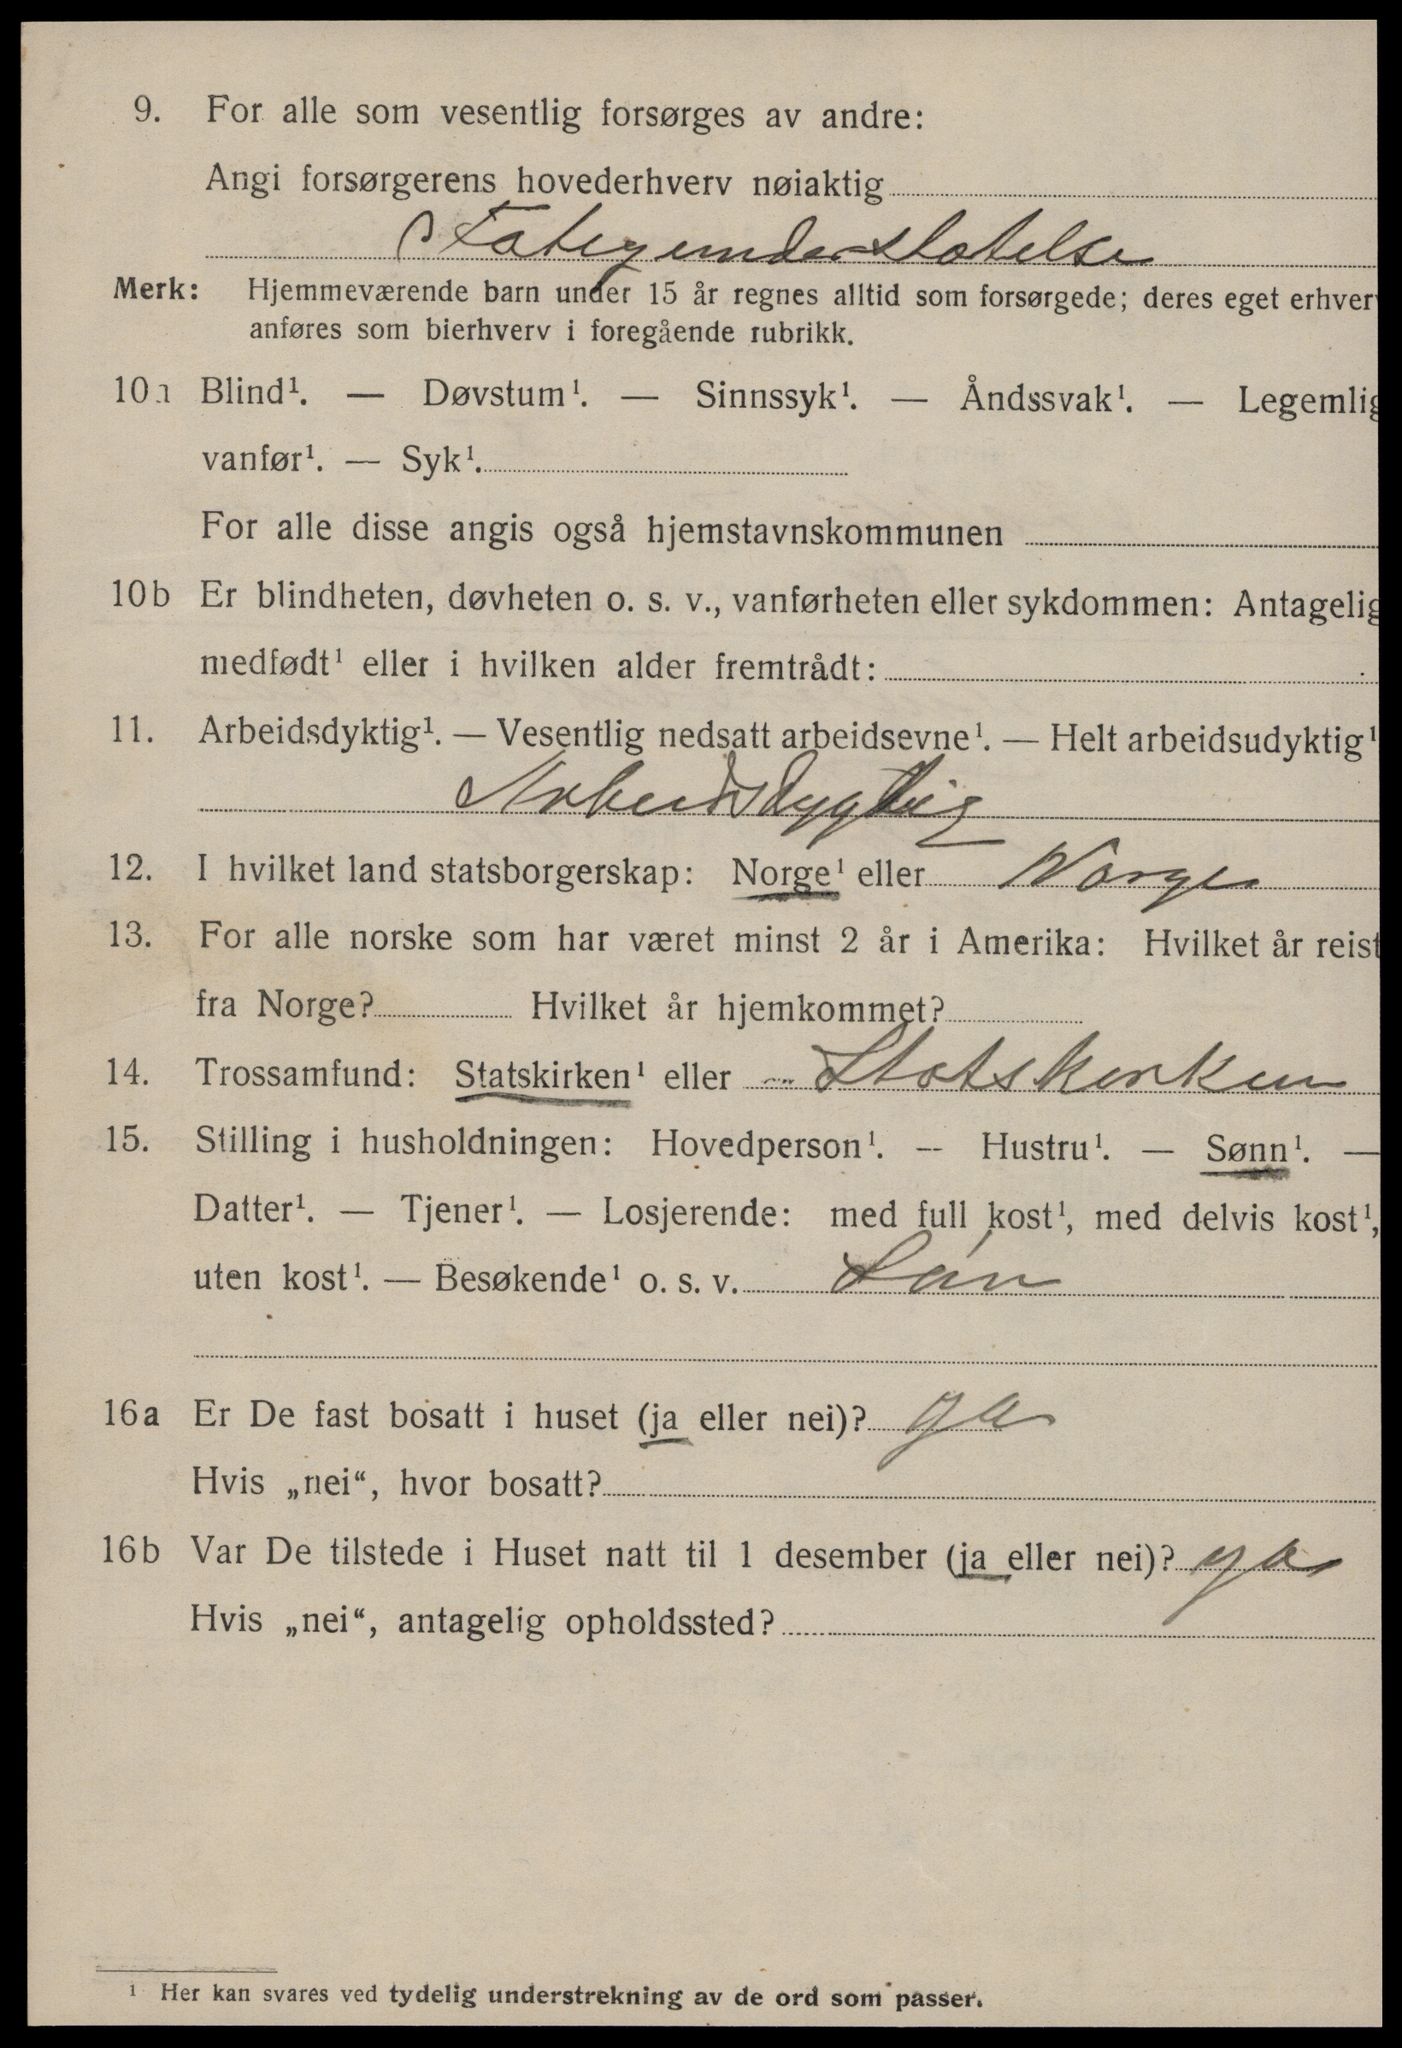 9. For alle som vesentlig forsørges av andre:
Angi forsørgerens hovederhverv nøiaktig
Fatigunderstøtelse
Merk: Hjemmeværende barn under 15 år regnes alltid som forsørgede; deres eget erhverv
anføres som bierhverv i foregående rubrikk.
10a Blind¹. — Døvstum¹. — Sinnssyk¹. — Åndssvak¹. — Legemlig
vanfør¹. — Syk¹.
For alle disse angis også hjemstavnskommunen
10b Er blindheten, døvheten o. s. v., vanførheten eller sykdommen: Antagelig
medfødt¹ eller i hvilken alder fremtrådt:
11. Arbeidsdyktig¹. — Vesentlig nedsatt arbeidsevne¹. — Helt arbeidsudyktig¹
Arbeidsdygtig
12. I hvilket land statsborgerskap: Norge¹ eller Norge
13. For alle norske som har været minst 2 år i Amerika: Hvilket år reist
fra Norge? Hvilket år hjemkommet?
14. Trossamfund: Statskirken¹ eller Statskirken
15. Stilling i husholdningen: Hovedperson¹. — Hustru¹. — Sønn¹. —
Datter¹. — Tjener¹. — Losjerende: med full kost¹, med delvis kost¹,
uten kost¹. — Besøkende¹ o. s. v. Són
16a Er De fast bosatt i huset (ja eller nei)? ja
Hvis „nei“, hvor bosatt?
16b Var De tilstede i Huset natt til 1 desember (ja eller nei)? ja
Hvis „nei“, antagelig opholdssted?
¹ Her kan svares ved tydelig understrekning av de ord som passer.